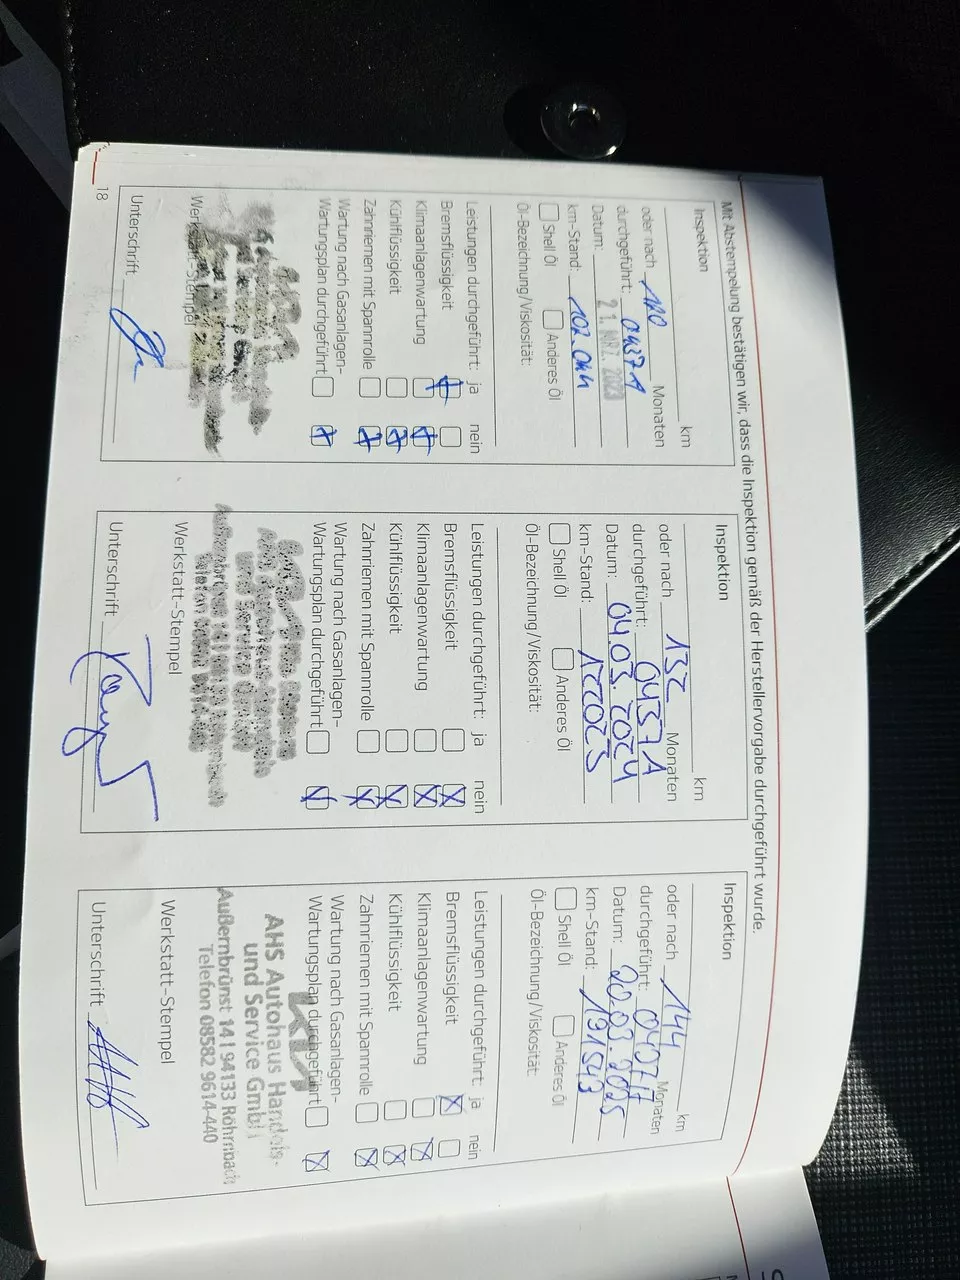 Mit Abstempelung bestätigen wir, dass die Inspektion gemäß der Herstellervorgabe durchgeführt wurde.
Inspektion
km
oder nach 120 Monaten
durchgeführt: 0437A
Datum: 21. MRZ. 2023
km-Stand: 102.044
Shell Öl Anderes Öl
Öl-Bezeichnung/Viskosität:
Leistungen durchgeführt: ja nein
Bremsflüssigkeit
Klimaanlagenwartung
Kühlflüssigkeit
Zahnriemen mit Spannrolle
Wartung nach Gasanlagen-
Wartungsplan durchgeführt
Werkstatt-Stempel
Unterschrift
18
Inspektion
km
oder nach 132 Monaten
durchgeführt: 0437A
Datum: 04.03.2024
km-Stand: 177023
Shell Öl Anderes Öl
Öl-Bezeichnung/Viskosität:
Leistungen durchgeführt: ja nein
Bremsflüssigkeit
Klimaanlagenwartung
Kühlflüssigkeit
Zahnriemen mit Spannrolle
Wartung nach Gasanlagen-
Wartungsplan durchgeführt
Werkstatt-Stempel
Unterschrift
Inspektion
km
oder nach 144 Monaten
durchgeführt: 040717
Datum: 20.03.2025
km-Stand: 191543
Shell Öl Anderes Öl
Öl-Bezeichnung/Viskosität:
Leistungen durchgeführt: ja nein
Bremsflüssigkeit
Klimaanlagenwartung
Kühlflüssigkeit
Zahnriemen mit Spannrolle
Wartung nach Gasanlagen-
Wartungsplan durchgeführt
KIA
AHS Autohaus Handels-
und Service GmbH
Außernbrünst 14 | 94133 Röhrnbach
Telefon 08582 9614-440
Werkstatt-Stempel
Unterschrift